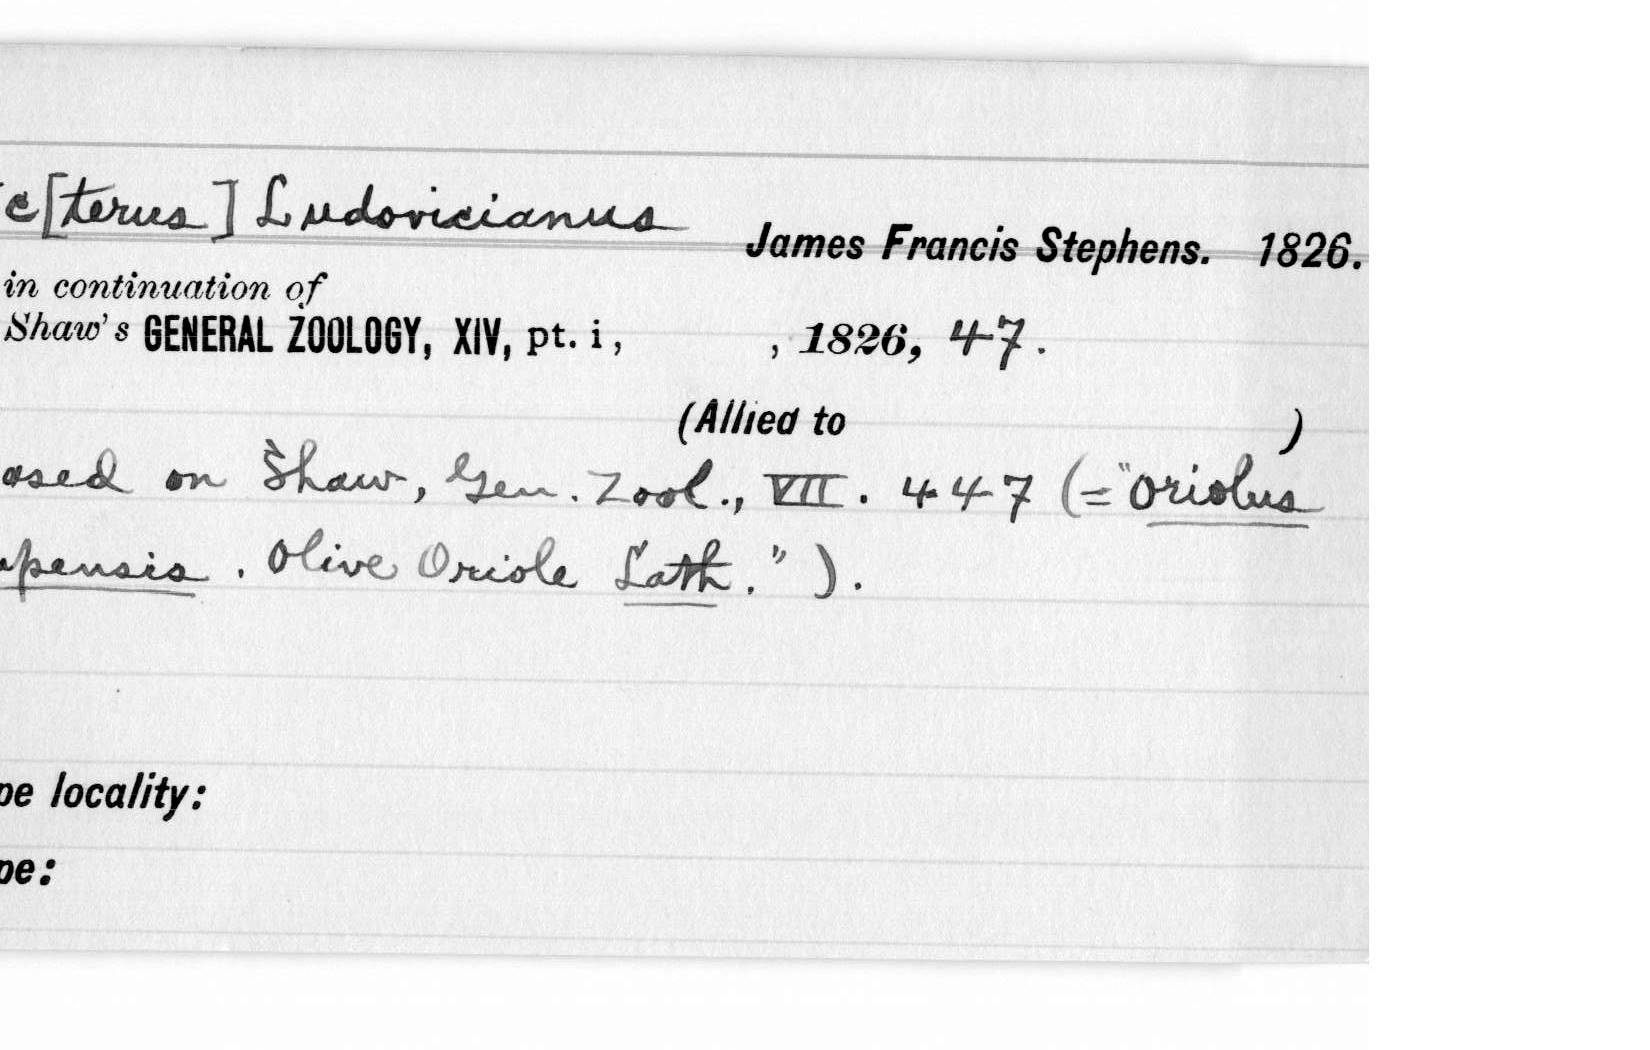 c[terus] Ludovicianus
James Francis Stephens. 1826.
in continuation of
Shaw's GENERAL ZOOLOGY, XIV, pt. i, , 1826, 47.
(Allied to )
ased on Shaw, Gen. Zool., VII. 447 (="Oriolus
apensis. Olive Oriole Lath.").
pe locality:
pe: